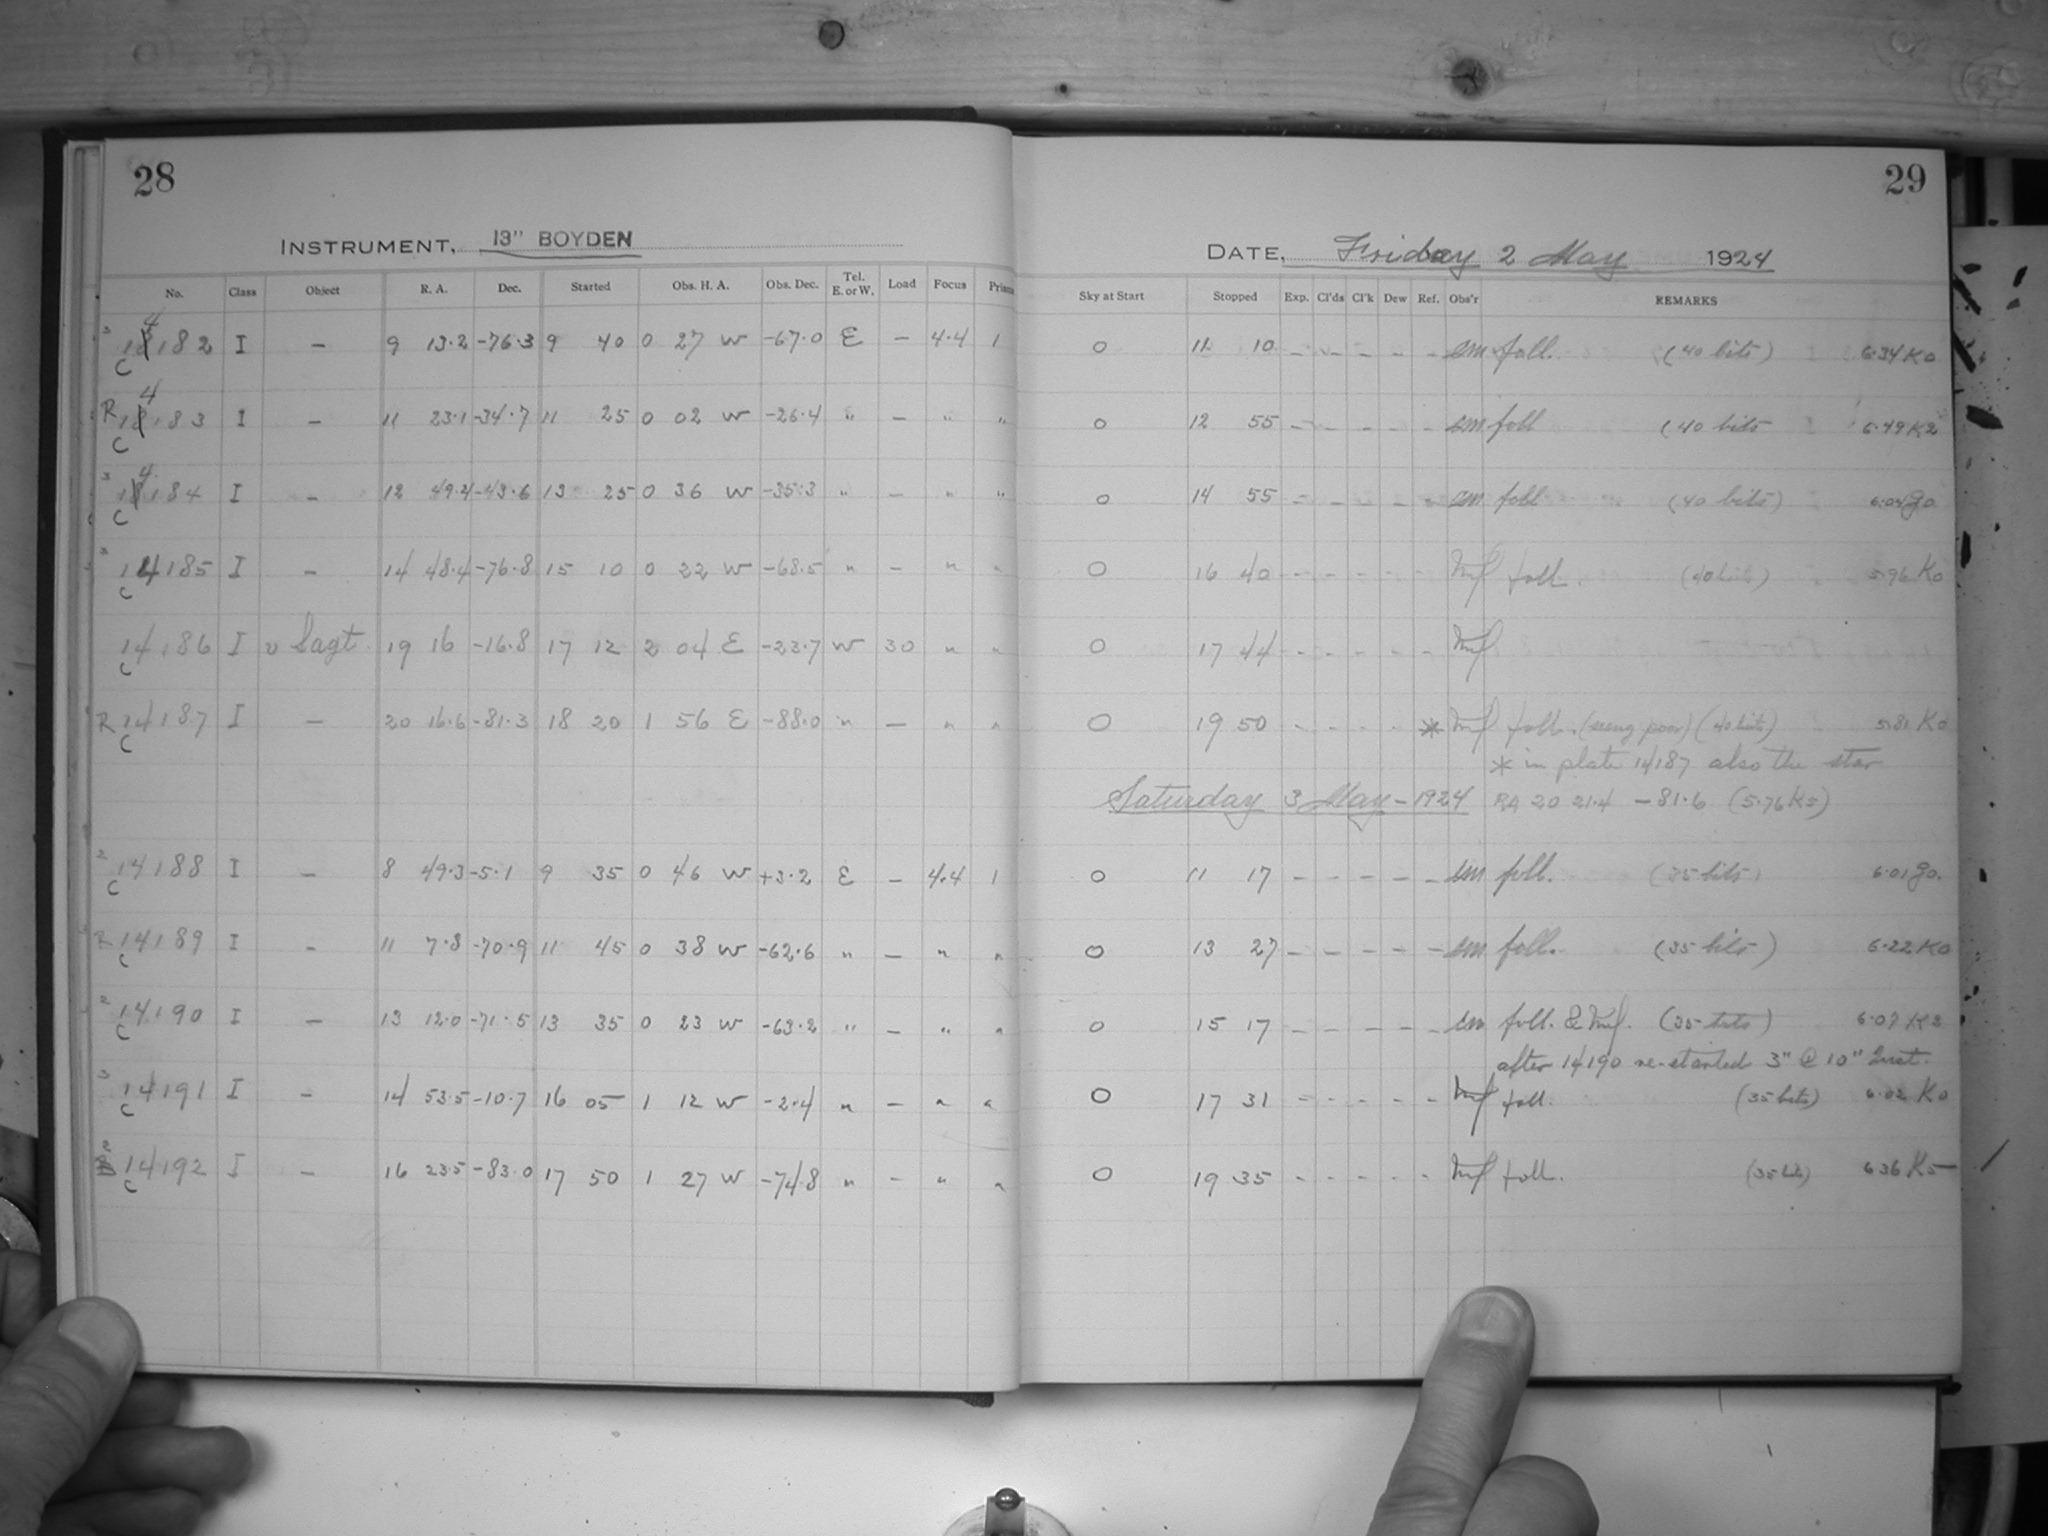 28
29
INSTRUMENT, 13" BOYDEN
DATE, Friday 2 May 1924
No. Class Object R. A. Dec. Started Obs. H. A. Obs. Dec. Tel. E. or W. Load Focus Prism Sky at Start Stopped Exp. Cl'ds Cl'k Dew Ref. Obs'r REMARKS
3 14182 C I — 9 13.2 -76.3 9 40 0 27 W -67.0 E — 4.4 1 0 11 10 — — — — — sm foll. (40 bits) 6.34 K0
R 14183 C I — 11 23.1 -34.7 11 25 0 02 W -26.4 " — " " 0 12 55 — — — — — sm foll (40 bits 6.49 K2
3 14184 C I — 12 49.4 -43.6 13 25 0 36 W -35.3 " — " " 0 14 55 — — — — — sm foll (40 bits) 6.04 G0
3 14185 C I — 14 48.4 -76.8 15 10 0 22 W -68.5 " — " " 0 16 40 - - - - - foll. (40 bits) 5.96 K0
14186 C I υ Sagt. 19 16 -16.8 17 12 2 04 E -23.7 W 30 " " 0 17 44 - - - - -
R 14187 C I — 20 16.6 -81.3 18 20 1 56 E -88.0 " — " " 0 19 50 - - - - * foll. (seeing poor) (40 bits) 5.81 K0
* in plate 14187 also the star
Saturday 3 May - 1924 RA 20 21.4 -81.6 (5.76 K5)
2 14188 C I — 8 49.3 -5.1 9 35 0 46 W +3.2 E — 4.4 1 0 11 17 — — — — — sm foll. (35 bits) 6.01 G0.
R 14189 C I — 11 7.8 -70.9 11 45 0 38 W -62.6 " — " " 0 13 27 — — — — — sm foll. (35 bits) 6.22 K0
2 14190 C I — 13 12.0 -71.5 13 35 0 23 W -63.2 " — " " 0 15 17 — — — — — sm foll. & (35 bits) 6.07 K2
after 14190 re-started 3" @ 10" Inst.
3 14191 C I — 14 53.5 -10.7 16 05 1 12 W -2.4 " — " " 0 17 31 - - - - - foll. (35 bits) 6.02 K0
2 14192 C I — 16 23.5 -83.0 17 50 1 27 W -74.8 " — " " 0 19 35 - - - - - foll. (35 bits) 6.36 K5